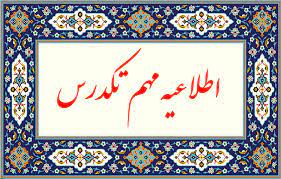 اطلاعیه مهم تکدرس